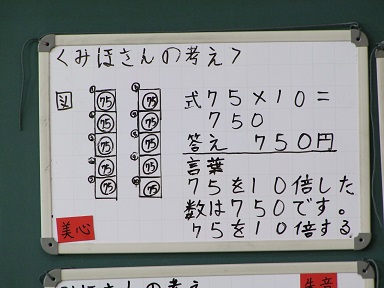 <くみほさんの考え>
図
75 75
75 75
75 75
75 75
75 75
式75×10=
750
答え 750円
言葉
75を10倍した
数は750です。
75を10倍する
美心
さんの考え